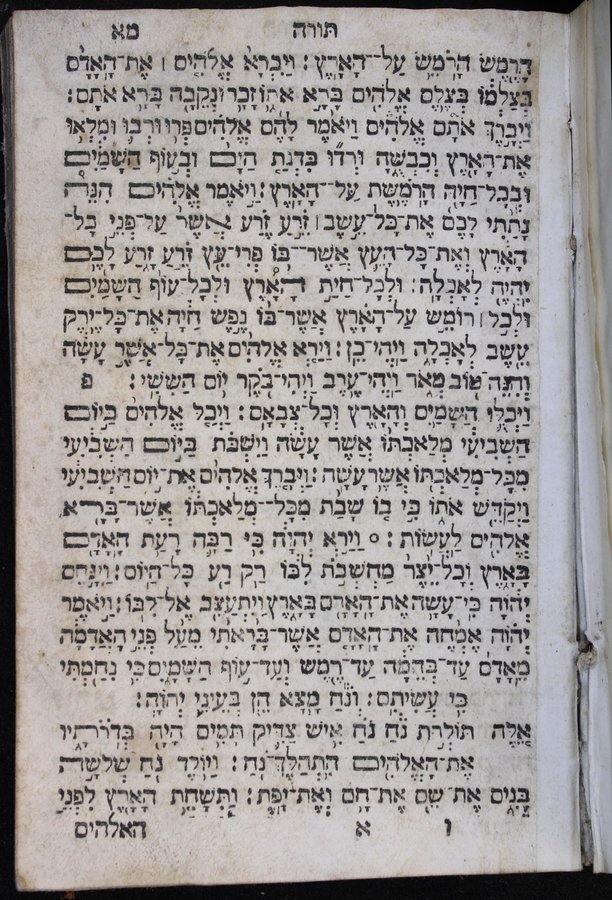 תורה מא
הָרֶמֶשׂ הָרֹמֵשׂ עַל־הָאָרֶץ׃ וַיִּבְרָא אֱלֹהִים ׀ אֶת־הָאָדָם
בְּצַלְמוֹ בְּצֶלֶם אֱלֹהִים בָּרָא אֹתוֹ זָכָר וּנְקֵבָה בָּרָא אֹתָם׃
וַיְבָרֶךְ אֹתָם אֱלֹהִים וַיֹּאמֶר לָהֶם אֱלֹהִים פְּרוּ וּרְבוּ וּמִלְאוּ
אֶת־הָאָרֶץ וְכִבְשֻׁהָ וּרְדוּ בִּדְגַת הַיָּם וּבְעוֹף הַשָּׁמַיִם
וּבְכָל־חַיָּה הָרֹמֶשֶׂת עַל־הָאָרֶץ׃ וַיֹּאמֶר אֱלֹהִים הִנֵּה
נָתַתִּי לָכֶם אֶת־כָּל־עֵשֶׂב ׀ זֹרֵעַ זֶרַע אֲשֶׁר עַל־פְּנֵי כָל־
הָאָרֶץ וְאֶת־כָּל־הָעֵץ אֲשֶׁר־בּוֹ פְרִי־עֵץ זֹרֵעַ זָרַע לָכֶם
יִהְיֶה לְאָכְלָה׃ וּלְכָל־חַיַּת הָאָרֶץ וּלְכָל־עוֹף הַשָּׁמַיִם
וּלְכֹל ׀ רוֹמֵשׂ עַל־הָאָרֶץ אֲשֶׁר־בּוֹ נֶפֶשׁ חַיָּה אֶת־כָּל־יֶרֶק
עֵשֶׂב לְאָכְלָה וַיְהִי־כֵן׃ וַיַּרְא אֱלֹהִים אֶת־כָּל־אֲשֶׁר עָשָׂה
וְהִנֵּה־טוֹב מְאֹד וַיְהִי־עֶרֶב וַיְהִי־בֹקֶר יוֹם הַשִּׁשִּׁי׃ פ
וַיְכֻלּוּ הַשָּׁמַיִם וְהָאָרֶץ וְכָל־צְבָאָם׃ וַיְכַל אֱלֹהִים בַּיּוֹם
הַשְּׁבִיעִי מְלַאכְתּוֹ אֲשֶׁר עָשָׂה וַיִּשְׁבֹּת בַּיּוֹם הַשְּׁבִיעִי
מִכָּל־מְלַאכְתּוֹ אֲשֶׁר עָשָׂה׃ וַיְבָרֶךְ אֱלֹהִים אֶת־יוֹם הַשְּׁבִיעִי
וַיְקַדֵּשׁ אֹתוֹ כִּי בוֹ שָׁבַת מִכָּל־מְלַאכְתּוֹ אֲשֶׁר־בָּרָא
אֱלֹהִים לַעֲשׂוֹת׃ ○ וַיַּרְא יְהוָה כִּי רַבָּה רָעַת הָאָדָם
בָּאָרֶץ וְכָל־יֵצֶר מַחְשְׁבֹת לִבּוֹ רַק רַע כָּל־הַיּוֹם׃ וַיִּנָּחֶם
יְהוָה כִּי־עָשָׂה אֶת־הָאָדָם בָּאָרֶץ וַיִּתְעַצֵּב אֶל־לִבּוֹ׃ וַיֹּאמֶר
יְהוָה אֶמְחֶה אֶת־הָאָדָם אֲשֶׁר־בָּרָאתִי מֵעַל פְּנֵי הָאֲדָמָה
מֵאָדָם עַד־בְּהֵמָה עַד־רֶמֶשׂ וְעַד־עוֹף הַשָּׁמָיִם כִּי נִחַמְתִּי
כִּי עֲשִׂיתִם׃ וְנֹחַ מָצָא חֵן בְּעֵינֵי יְהוָה׃
אֵלֶּה תּוֹלְדֹת נֹחַ נֹחַ אִישׁ צַדִּיק תָּמִים הָיָה בְּדֹרֹתָיו
אֶת־הָאֱלֹהִים הִתְהַלֶּךְ־נֹחַ׃ וַיּוֹלֶד נֹחַ שְׁלֹשָׁה
בָנִים אֶת־שֵׁם אֶת־חָם וְאֶת־יָפֶת׃ וַתִּשָּׁחֵת הָאָרֶץ לִפְנֵי
ו א האלהים